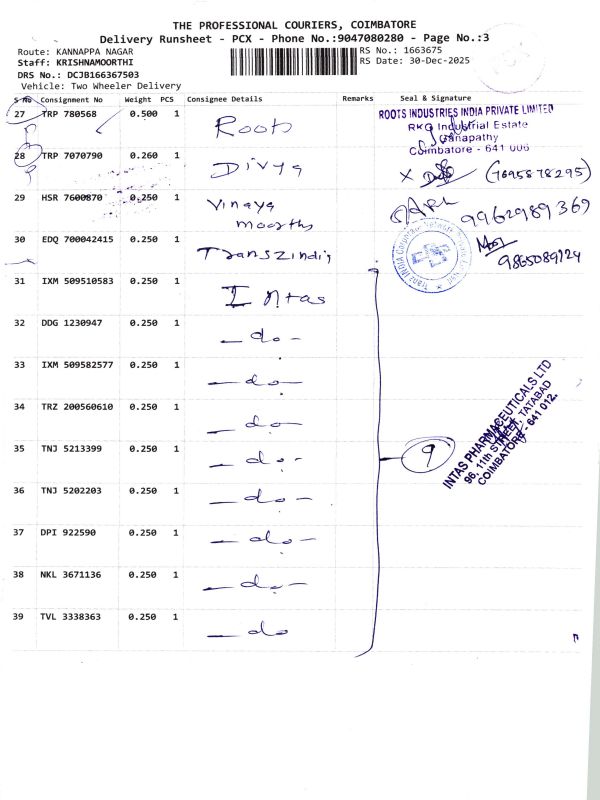 THE PROFESSIONAL COURIERS, COIMBATORE
Delivery Runsheet - PCX - Phone No.:9047080280 - Page No.:3
Route: KANNAPPA NAGAR
RS No.: 1663675
Staff: KRISHNAMOORTHI
RS Date: 30-Dec-2025
DRS No.: DCJB166367503
Vehicle: Two Wheeler Delivery
S No Consignment No Weight PCS Consignee Details Remarks Seal & Signature
27 TRP 780568 0.500 1 Roots
ROOTS INDUSTRIES INDIA PRIVATE LIMITED
RKG Industrial Estate
Ganapathy
Coimbatore - 641 006
28 TRP 7070790 0.260 1 Divya
X (7695878295)
29 HSR 7600870 0.250 1 Vinaya
moorthy
9962989369
30 EDQ 700042415 0.250 1
9865089224
31 IXM 509510583 0.250 1 Intas
32 DDG 1230947 0.250 1 - do -
33 IXM 509582577 0.250 1 - do -
34 TRZ 200560610 0.250 1 - do -
35 TNJ 5213399 0.250 1 - do -
9
INTAS PHARMACEUTICALS LTD
96, 11th STREET, TATABAD
COIMBATORE - 641 012.
36 TNJ 5202203 0.250 1 - do -
37 DPI 922590 0.250 1 - do -
38 NKL 3671136 0.250 1 - do -
39 TVL 3338363 0.250 1 - do